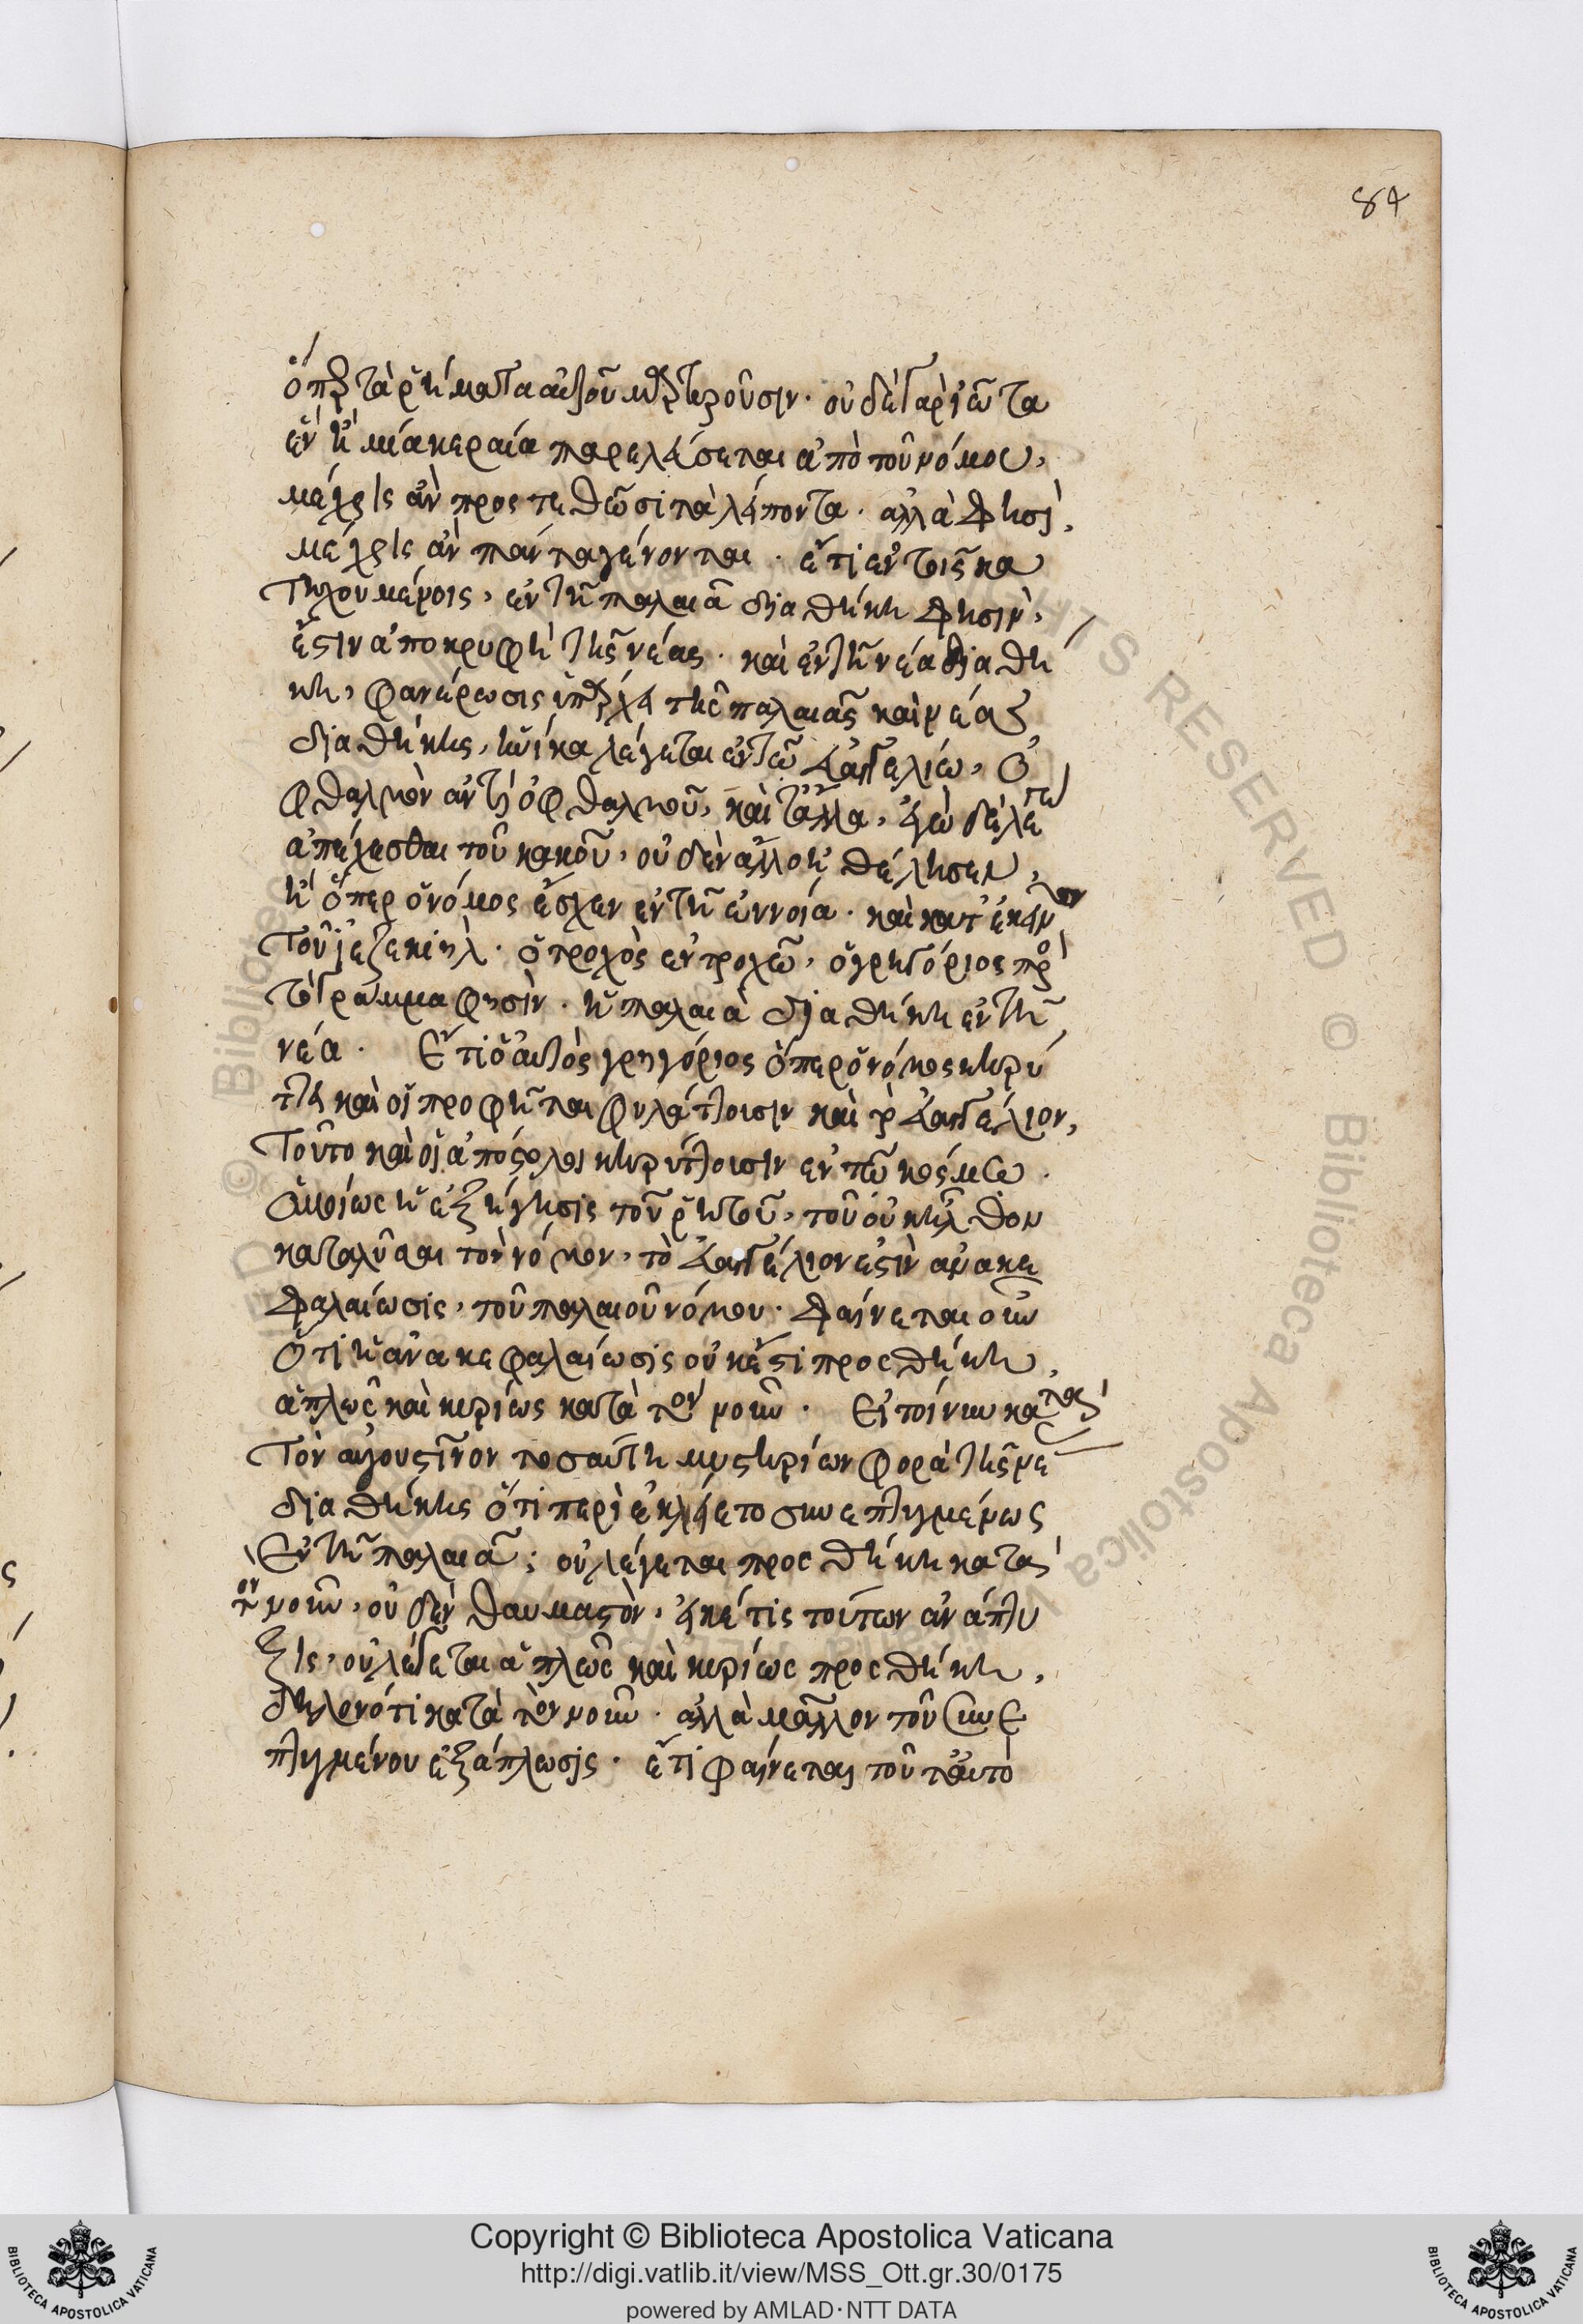 84
ὅπερ τὰ ῥήματα αὐτοῦ μαρτυροῦσιν. οὐδὲ γὰρ ἰῶτα
ἓν ἢ μία κεραία παρελεύσεται ἀπὸ τοῦ νόμου,
μέχρις ἂν προστεθῶσι τὰ λείποντα. ἀλλὰ φησὶ,
μέχρις ἂν πάντα γένονται. ἔτι ἐν τοῖς κα
τηχουμένοις, ἐν τῇ παλαιᾷ διαθήκη φησιν,
ἔστιν ἀποκρυφὴ τῆς νέας. καὶ ἐν τῇ νέα διαθή
κη, φανέρωσις ὑπάρχει τῆς παλαιᾶς καὶ νέας
διαθήκης, ἡνίκα λέγεται ἐν τῶ εὐαγγελίω, ὀ
φθαλμὸν ἀντὶ ὀφθαλμοῦ, καὶ τἄλλα, ἐγὼ δὲ λέγω
ἀπέχεσθαι τοῦ κακοῦ, οὐδὲν ἄλλο ἠθέλησεν,
ἢ ὅπερ ὁ νόμος ἔσχεν ἐν τῇ ἐννοία. καὶ κατ' ἐκεῖνον
τοῦ ἰεζεκιὴλ. ὁ τροχὸς ἐν τροχῶ, ὁ γρηγόριος πρὸς
τὸ γράμμα φησὶν. ἡ παλαιὰ διαθήκη ἐν τῇ
νέα. Ἔτι ὁ αὐτὸς γρηγόριος ὅπερ ὁ νόμος κηρύ
ττει καὶ οἱ προφῆται φυλάττουσιν καὶ τὸ εὐαγγέλιον,
τοῦτο καὶ οἱ ἀπόστολοι κηρύττουσιν ἐν τῶ κόσμω.
Ὁμοίως ἡ ἐξήγησις τοῦ ῥητοῦ, τοῦ οὐκ ἦλθον
καταλῦσαι τὸν νόμον, τὸ εὐαγγέλιον ἐστὶν ἀνακε
φαλαίωσις, τοῦ παλαιοῦ νόμου. φαίνεται οὖν
ὅτι ἡ ἀνακεφαλαίωσις οὐκ ἔστι προσθήκη,
ἁπλῶς καὶ κυρίως κατὰ τὸν νοῦν. Εἰ τοίνυν κατὰ
τὸν αὐγουστῖνον τοσαύτη μυστηρίων φορὰ τῆς νέ
διαθήκης ὅτι περιεκλείετο συνεπτυγμένως
Ἐν τῇ παλαιᾷ; οὐ λέγεται προσθήκη κατὰ
τὸν νοῦν, οὐδὲν θαυμαστὸν, εἰ καί τις τούτων ἀνάπτυ
ξις, οὐ λέγεται ἁπλῶς καὶ κυρίως προσθήκη,
δηλονότι κατὰ τὸν νοῦν. ἀλλὰ μᾶλλον τοῦ συνε
πτυγμένου ἐξάπλωσις. ἔτι φαίνεται τοῦ ταὐτὸ
Copyright © Biblioteca Apostolica Vaticana
http://digi.vatlib.it/view/MSS_Ott.gr.30/0175
powered by AMLAD·NTT DATA
BIBLIOTECA APOSTOLICA VATICANA
BIBLIOTECA APOSTOLICA VATICANA